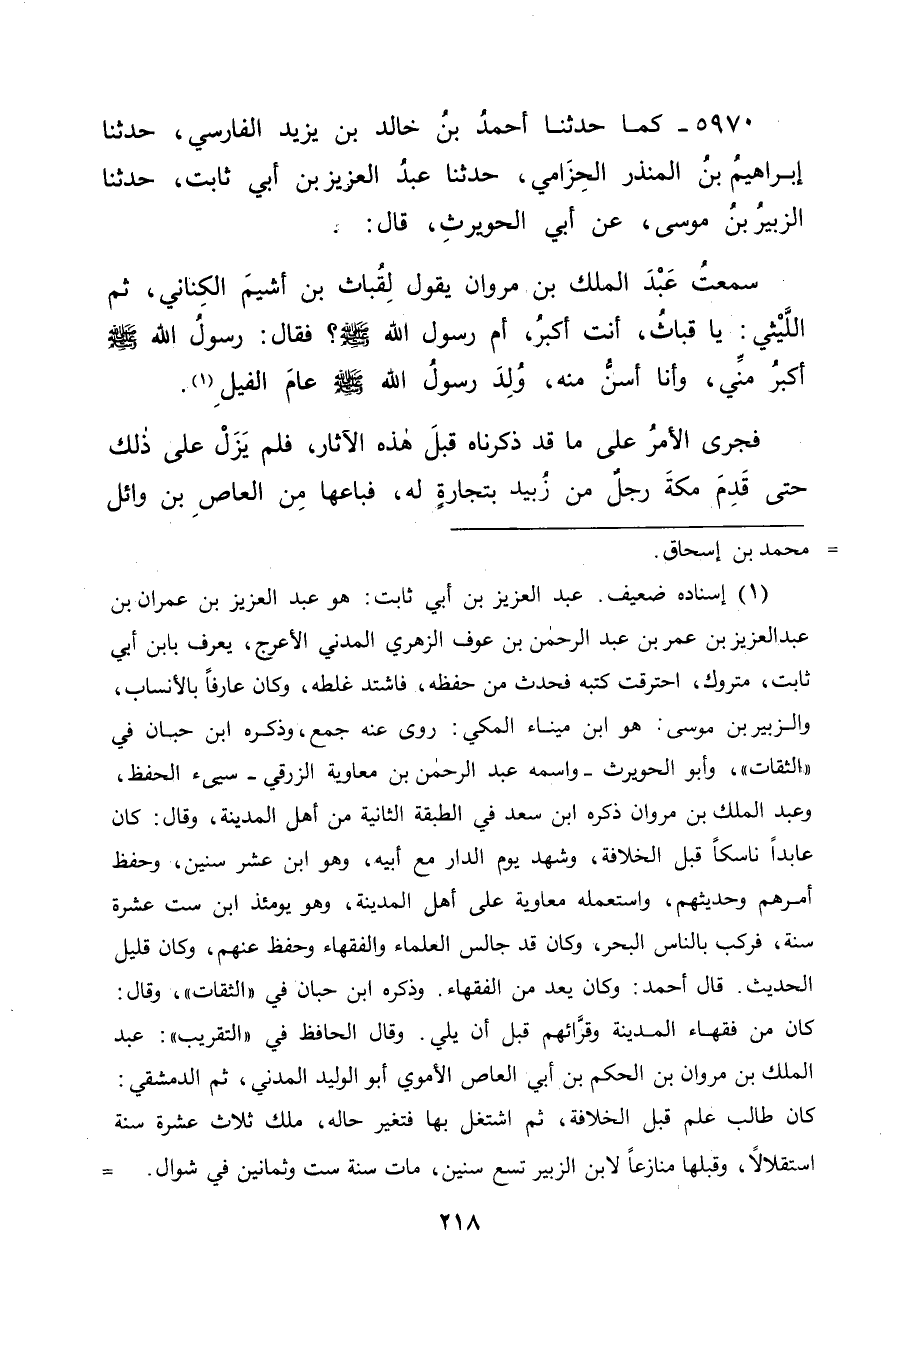 ٥٩٧٠ـ كمـا حدثنـا أحمدُ بنُ خالد بن يزيد الفارسي، حدثنا
إبـراهيمُ بنُ المنذر الحِزَامي، حدثنا عبدُ العزيز بن أبي ثابت، حدثنا
الزبيرُ بنُ موسى، عن أبي الحويرثِ، قال:
سمعتُ عَبْدَ الملك بن مروان يقول لِقُباث بن أشيمَ الكِناني، ثم
اللَّيْثي: يا قباثُ، أنت أكبرُ، أم رسول الله ﷺ؟ فقال: رسولُ الله ﷺ
أكبرُ منِّي، وأنا أسنُّ منه، وُلِدَ رسولُ الله ﷺ عامَ الفيلِ(١).
فجرى الأمرُ على ما قد ذكرناه قبلَ هٰذه الآثار، فلم يَزَلْ على ذٰلك
حتى قَدِمَ مكةَ رجلٌ من زُبيد بتجارةٍ له، فباعها مِن العاصِ بن وائل
= محمد بن إسحاق.
(١) إسناده ضعيف. عبد العزيز بن أبي ثابت: هو عبد العزيز بن عمران بن
عبدالعزيز بن عمر بن عبد الرحمٰن بن عوف الزهري المدني الأعرج، يعرف بابن أبي
ثابت، متروك، احترقت كتبه فحدث من حفظه، فاشتد غلطه، وكان عارفاً بالأنساب،
والـزبير بن موسى: هو ابن مينـاء المكي: روى عنه جمع، وذكـره ابن حبـان في
«الثقات»، وأبو الحويرث ـ واسمه عبد الرحمٰن بن معاوية الزرقي ـ سيىء الحفظ،
وعبد الملك بن مروان ذكره ابن سعد في الطبقة الثانية من أهل المدينة، وقال: كان
عابداً ناسكاً قبل الخلافة، وشهد يوم الدار مع أبيه، وهو ابن عشر سنين، وحفظ
أمـرهم وحديثهم، واستعمله معاوية على أهل المدينة، وهو يومئذ ابن ست عشرة
سنة، فركب بالناس البحر، وكان قد جالس العلماء والفقهاء وحفظ عنهم، وكان قليل
الحديث. قال أحمد: وكان يعد من الفقهاء. وذكره ابن حبان في «الثقات»، وقال:
كان من فقهـاء المـدينة وقرَّائهم قبل أن يلي. وقال الحافظ في «التقريب»: عبد
الملك بن مروان بن الحكم بن أبي العاص الأموي أبو الوليد المدني، ثم الدمشقي:
كان طالب علم قبل الخلافة، ثم اشتغل بها فتغير حاله، ملك ثلاث عشرة سنة
استقلالاً، وقبلها منازعاً لابن الزبير تسع سنين، مات سنة ست وثمانين في شوال. =
٢١٨